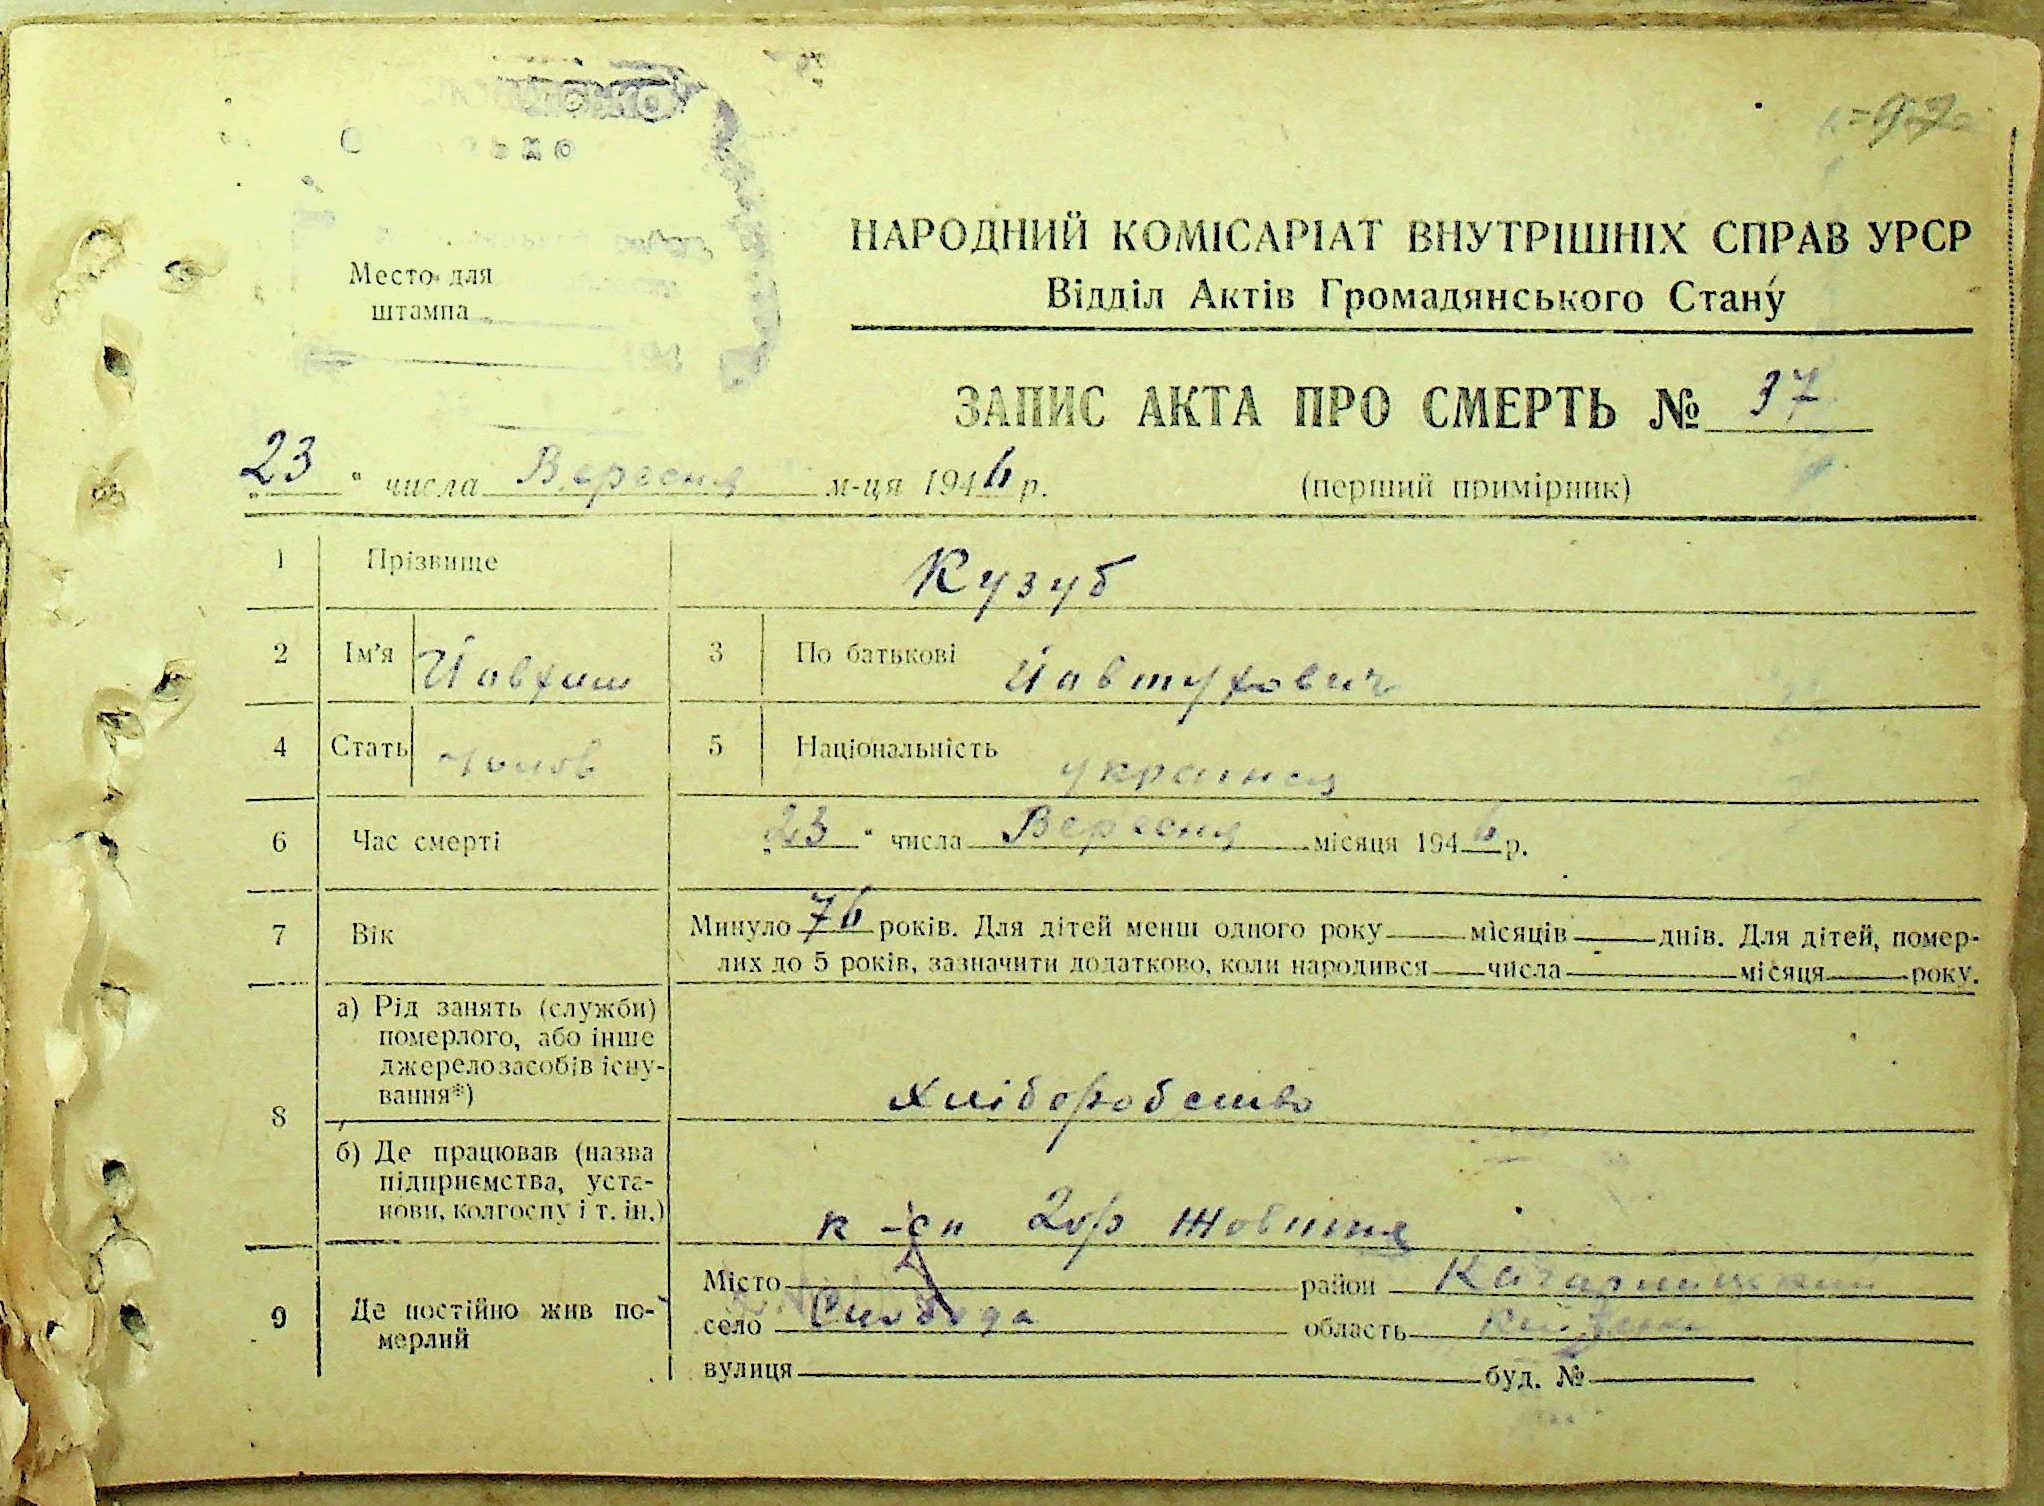 НАРОДНИЙ КОМІСАРІАТ ВНУТРІШНІХ СПРАВ УРСР
Відділ Актів Громадянського Стану
Место для
штампа
ЗАПИС АКТА ПРО СМЕРТЬ № 37
„23“ числа Вересня м-ця 1946 р.
(перший примірник)
1 Прізвище Кузуб
2 Ім'я Йовхим 3 По батькові Йовтухович
4 Стать чолов 5 Національність українец
6 Час смерті „23“ числа Вересня місяця 1946 р.
7 Вік Минуло 76 років. Для дітей менш одного року місяців днів. Для дітей, помер-
лих до 5 років, зазначити додатково, коли народився числа місяця року.
8 а) Рід занять (служби)
померлого, або інше
джерело засобів існу-
вання*)
Хліборобство
б) Де працював (назва
підприємства, уста-
нови, колгоспу і т. ін.)
к-сп 2ор Жовтня
9 Де постійно жив по-
мерлий
Місто район Кагарлицький
село Слобода область
вулиця буд. №